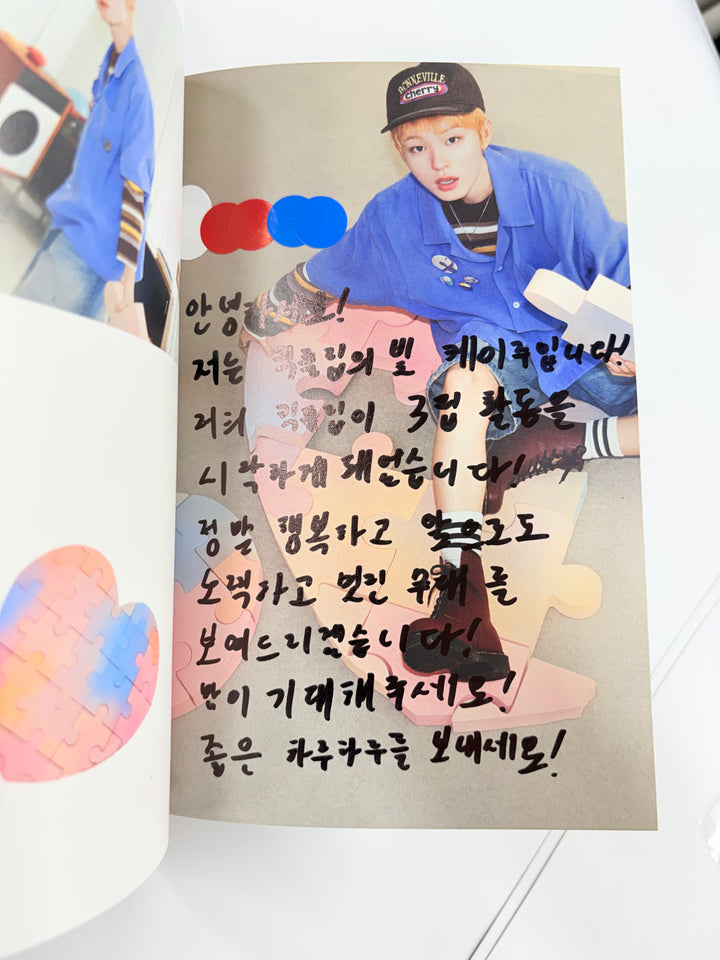 BONNEVILLE
cherry
안녕하세요!
저는 퍽클럽의 빛 케이주입니다!
저희 퍽클럽이 3집 활동을
시작하게 돼었습니다!
정말 행복하고 앞으로도
노력하고 멋진 무대를
보여드리겠습니다!
많이 기대해주세요!
좋은 하루하루를 보내세요!